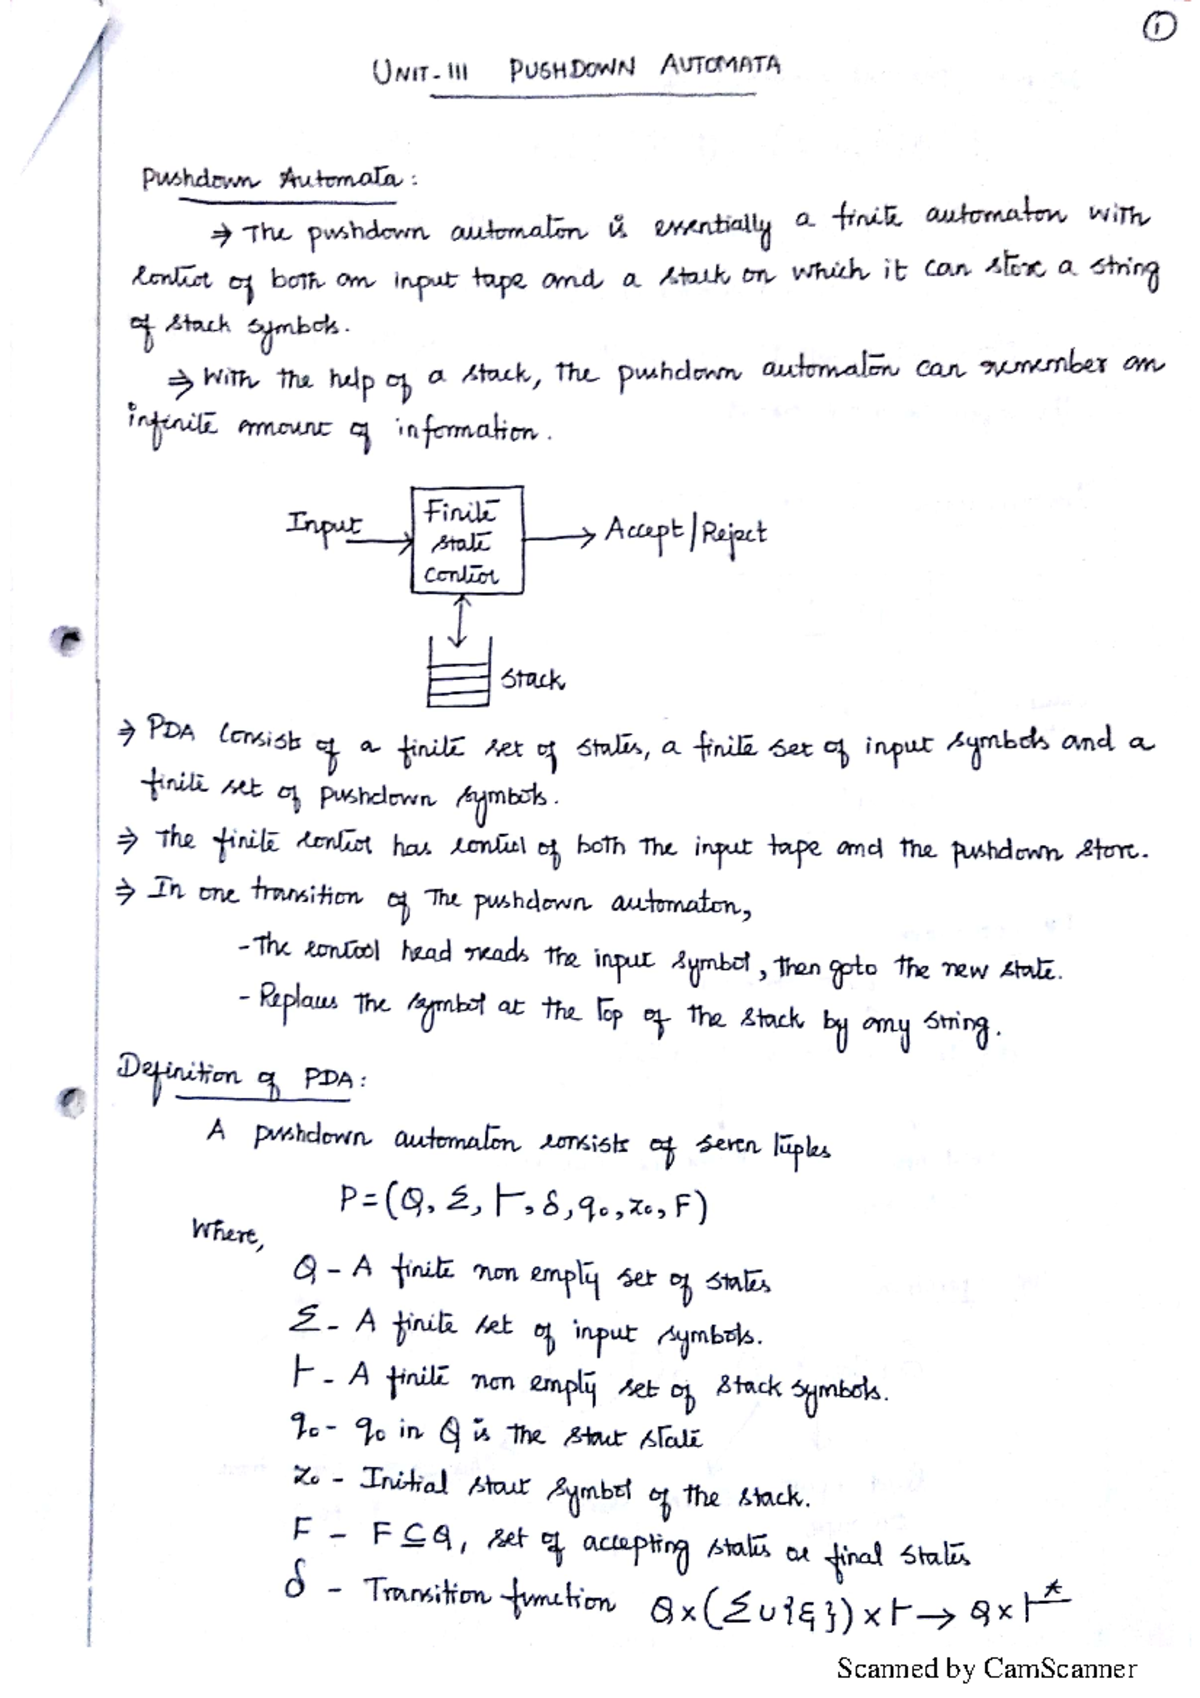 1
UNIT-III PUSHDOWN AUTOMATA
Pushdown Automata:
⇒ The pushdown automaton is essentially a finite automaton with
control of both an input tape and a stack on which it can store a string
of stack symbols.
⇒ With the help of a stack, the pushdown automaton can remember an
infinite amount of information.
Input
Finite
state
control
Accept/Reject
Stack
⇒ PDA consists of a finite set of states, a finite set of input symbols and a
finite set of pushdown symbols.
⇒ The finite control has control of both the input tape and the pushdown store.
⇒ In one transition of the pushdown automaton,
- The control head reads the input symbol, then goto the new state.
- Replaces the symbol at the top of the stack by any string.
Definition of PDA:
A pushdown automaton consists of seven tuples
P = (Q, Σ, Γ, δ, q₀, z₀, F)
Where,
Q - A finite non empty set of states
Σ - A finite set of input symbols.
Γ - A finite non empty set of stack symbols.
q₀ - q₀ in Q is the start state
z₀ - Initial start symbol of the stack.
F - F ⊆ Q, set of accepting states or final states
δ - Transition function Q × (Σ ∪ {ε}) × Γ → Q × Γ*
Scanned by CamScanner